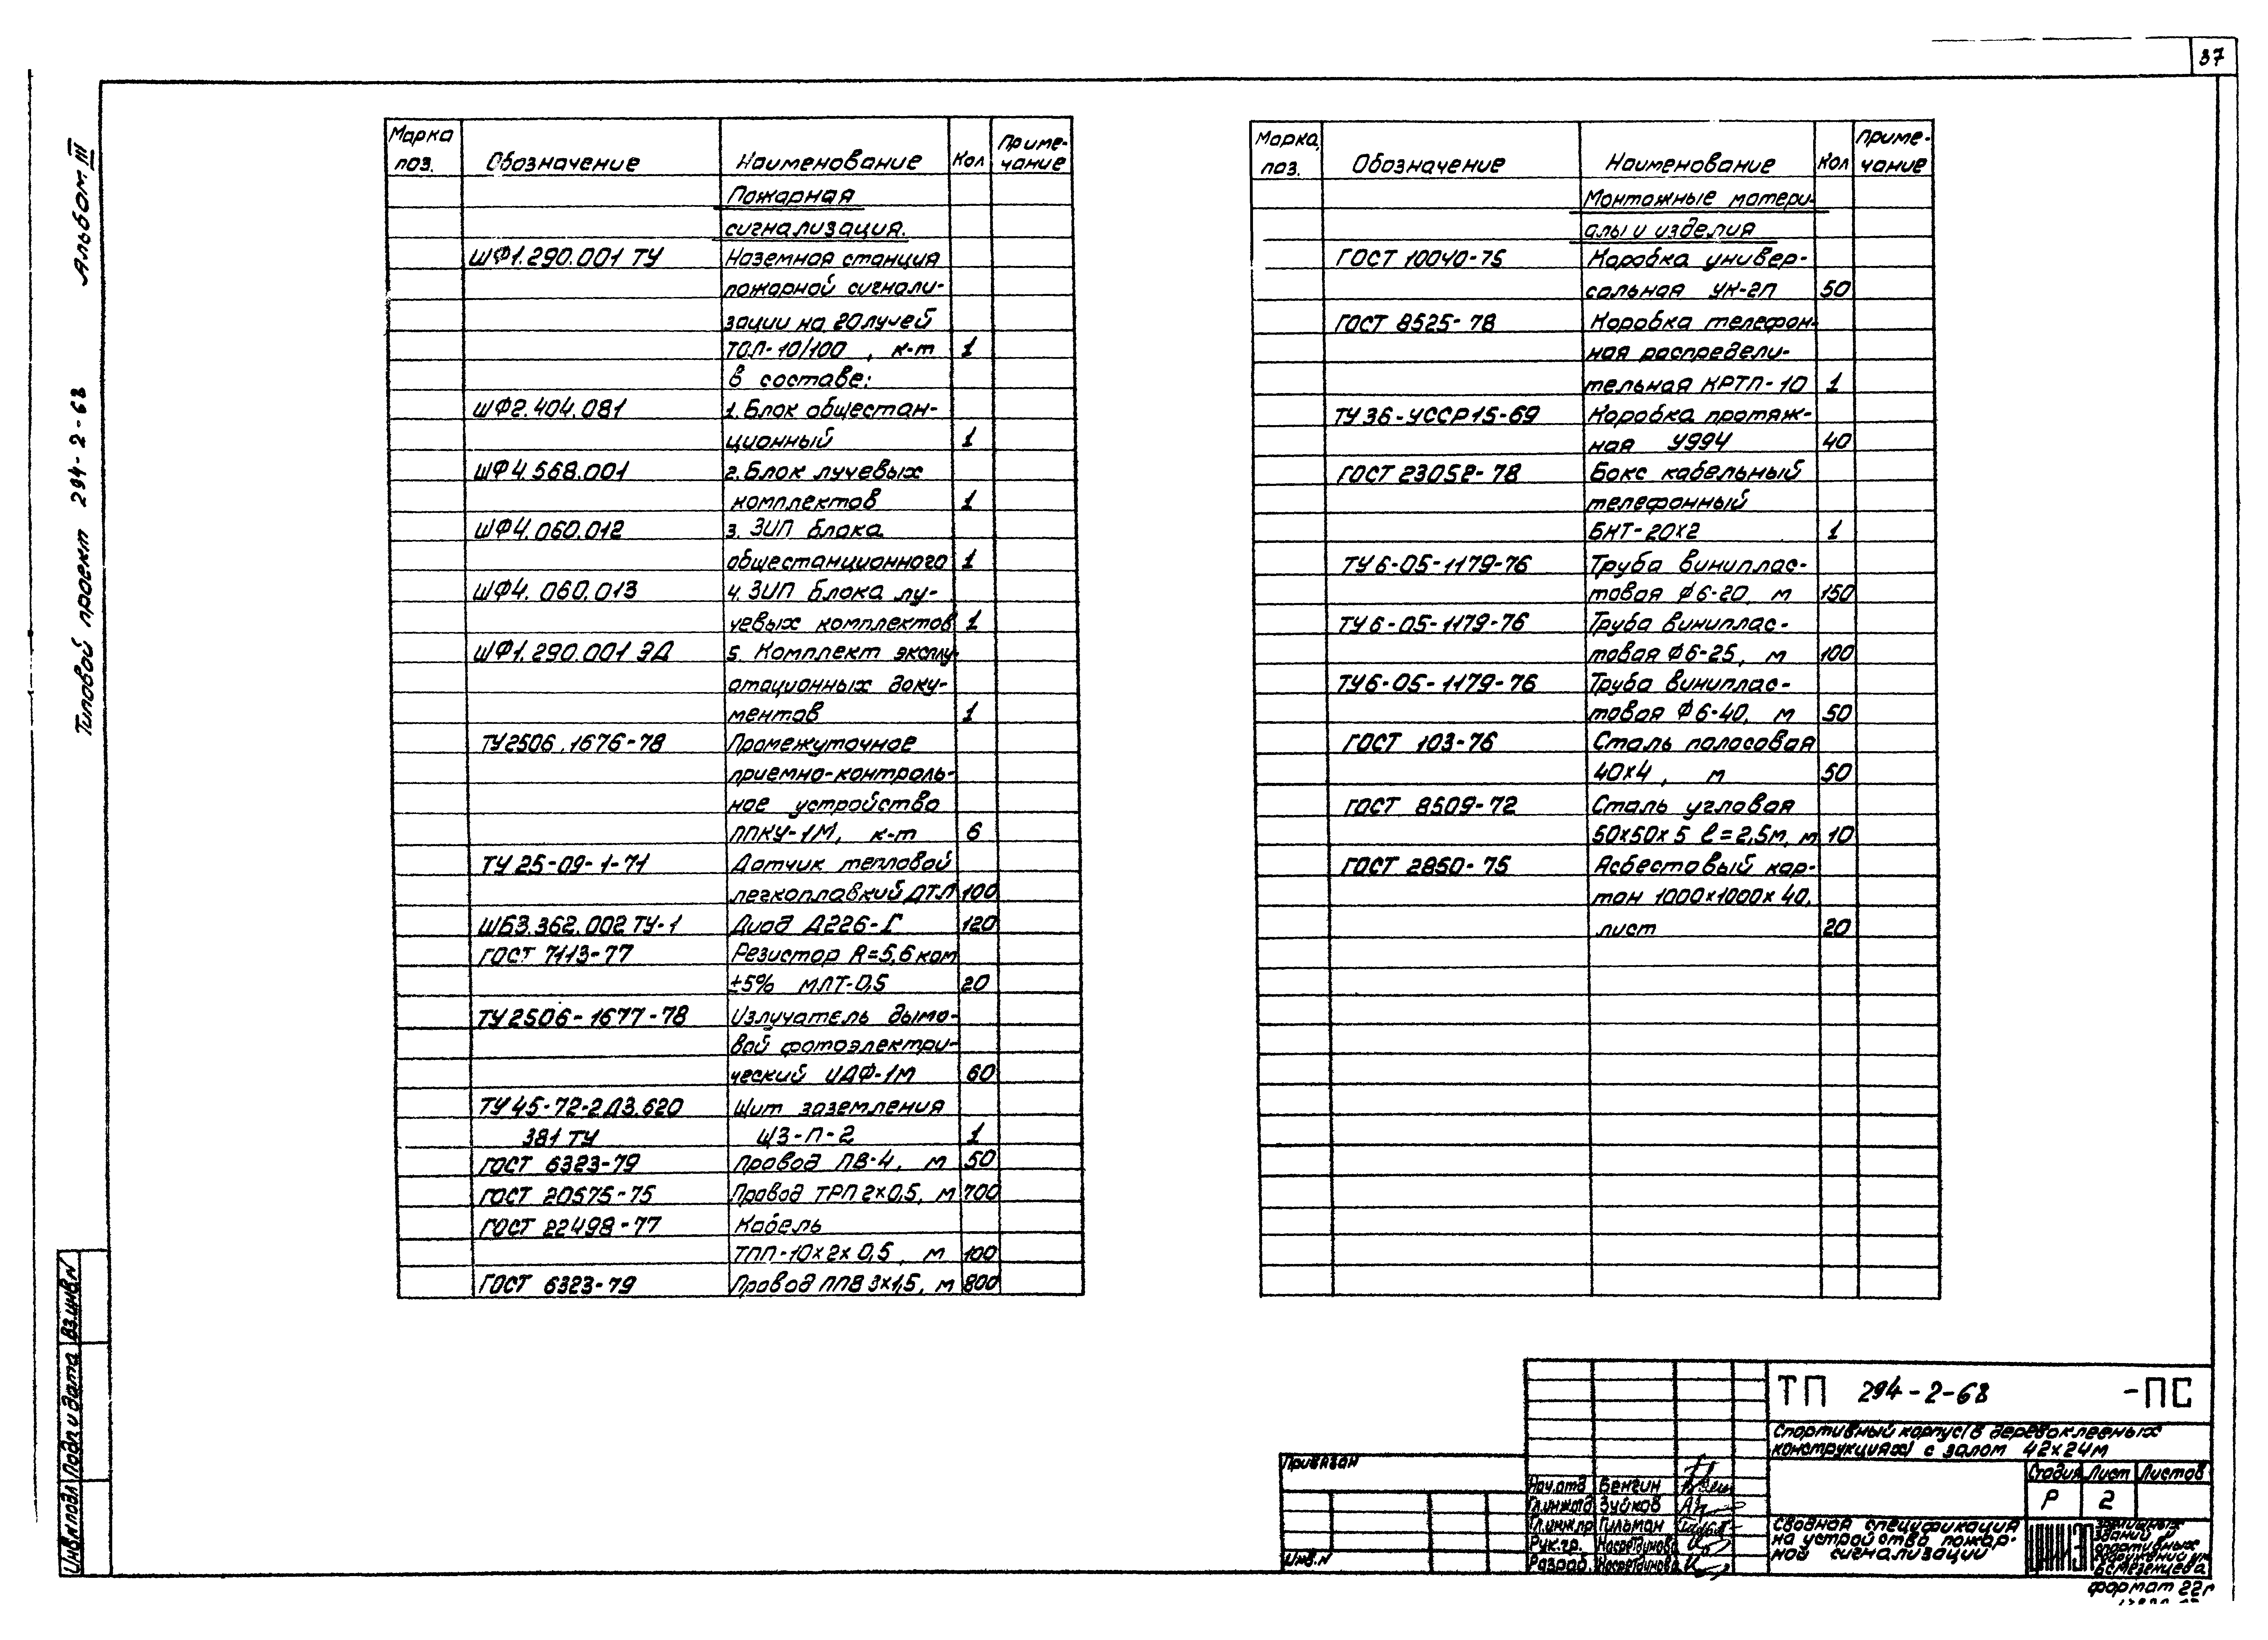 37
Альбом III
Типовой проект 294-2-68
Марка поз. Обозначение Наименование Кол Приме-чание
Пожарная
сигнализация.
ШФ1.290.001 ТУ Наземная станция
пожарной сигнали-
зации на 20 лучей
ТОЛ-10/100, к-т 1
в составе:
ШФ2.404.081 1. Блок общестан-
ционный 1
ШФ4.568.001 2. Блок лучевых
комплектов 1
ШФ4.060.012 3. ЗИП блока
общестанционного 1
ШФ4.060.013 4. ЗИП блока лу-
чевых комплектов 1
ШФ1.290.001 ЭД 5. Комплект эксплу-
атационных доку-
ментов 1
ТУ2506.1676-78 Промежуточное
приемно-контроль-
ное устройство
ППКУ-1М, к-т 6
ТУ 25-09-1-71 Датчик тепловой
легкоплавкий ДТЛ 100
ШБ3.362.002 ТУ-1 Диод Д226-Г 120
ГОСТ 7113-77 Резистор R=5,6 ком
±5% МЛТ-0,5 20
ТУ2506-1677-78 Излучатель дымо-
вой фотоэлектри-
ческий ИДФ-1М 60
ТУ45-72-2Д3.620 Щит заземления
381 ТУ ЩЗ-П-2 1
ГОСТ 6323-79 Провод ПВ-4, м 50
ГОСТ 20575-75 Провод ТРП 2х0,5, м 700
ГОСТ 22498-77 Кабель
ТПП-10х2х0,5, м 100
ГОСТ 6323-79 Провод ППВ 3х1,5, м 800
Марка, поз. Обозначение Наименование Кол Приме-чание
Монтажные матери-
алы и изделия
ГОСТ 10040-75 Коробка универ-
сальная УК-2П 50
ГОСТ 8525-78 Коробка телефон-
ная распредели-
тельная КРТП-10 1
ТУ36-УССР15-69 Коробка протяж-
ная У994 40
ГОСТ 23052-78 Бокс кабельный
телефонный
БКТ-20х2 1
ТУ6-05-1179-76 Труба виниплас-
товая Ф6-20, м 150
ТУ6-05-1179-76 Труба виниплас-
товая Ф6-25, м 100
ТУ6-05-1179-76 Труба виниплас-
товая Ф6-40, м 50
ГОСТ 103-76 Сталь полосовая
40х4, м 50
ГОСТ 8509-72 Сталь угловая
50х50х5 ℓ=2,5м, м 10
ГОСТ 2850-75 Асбестовый кар-
тон 1000х1000х40,
лист 20
Инв.N подл Подп и дата Вз.инв.N
ТП 294-2-68 -ПС
Спортивный корпус (в деревоклееных
конструкциях) с залом 42х24м
Привязан
Инв.N
Нач.отд Бенгин
Гл.инж.отд Зуйков
Гл.инж.пр Гильман
Рук.гр. Насретдинова
Разраб. Насретдинова
Стадия Лист Листов
Р 2
Сводная спецификация
на устройство пожар-
ной сигнализации
ЦНИИЭП
зрелищных
зданий и
спортивных
сооружений им.
Б.С.Мезенцева
формат 22г